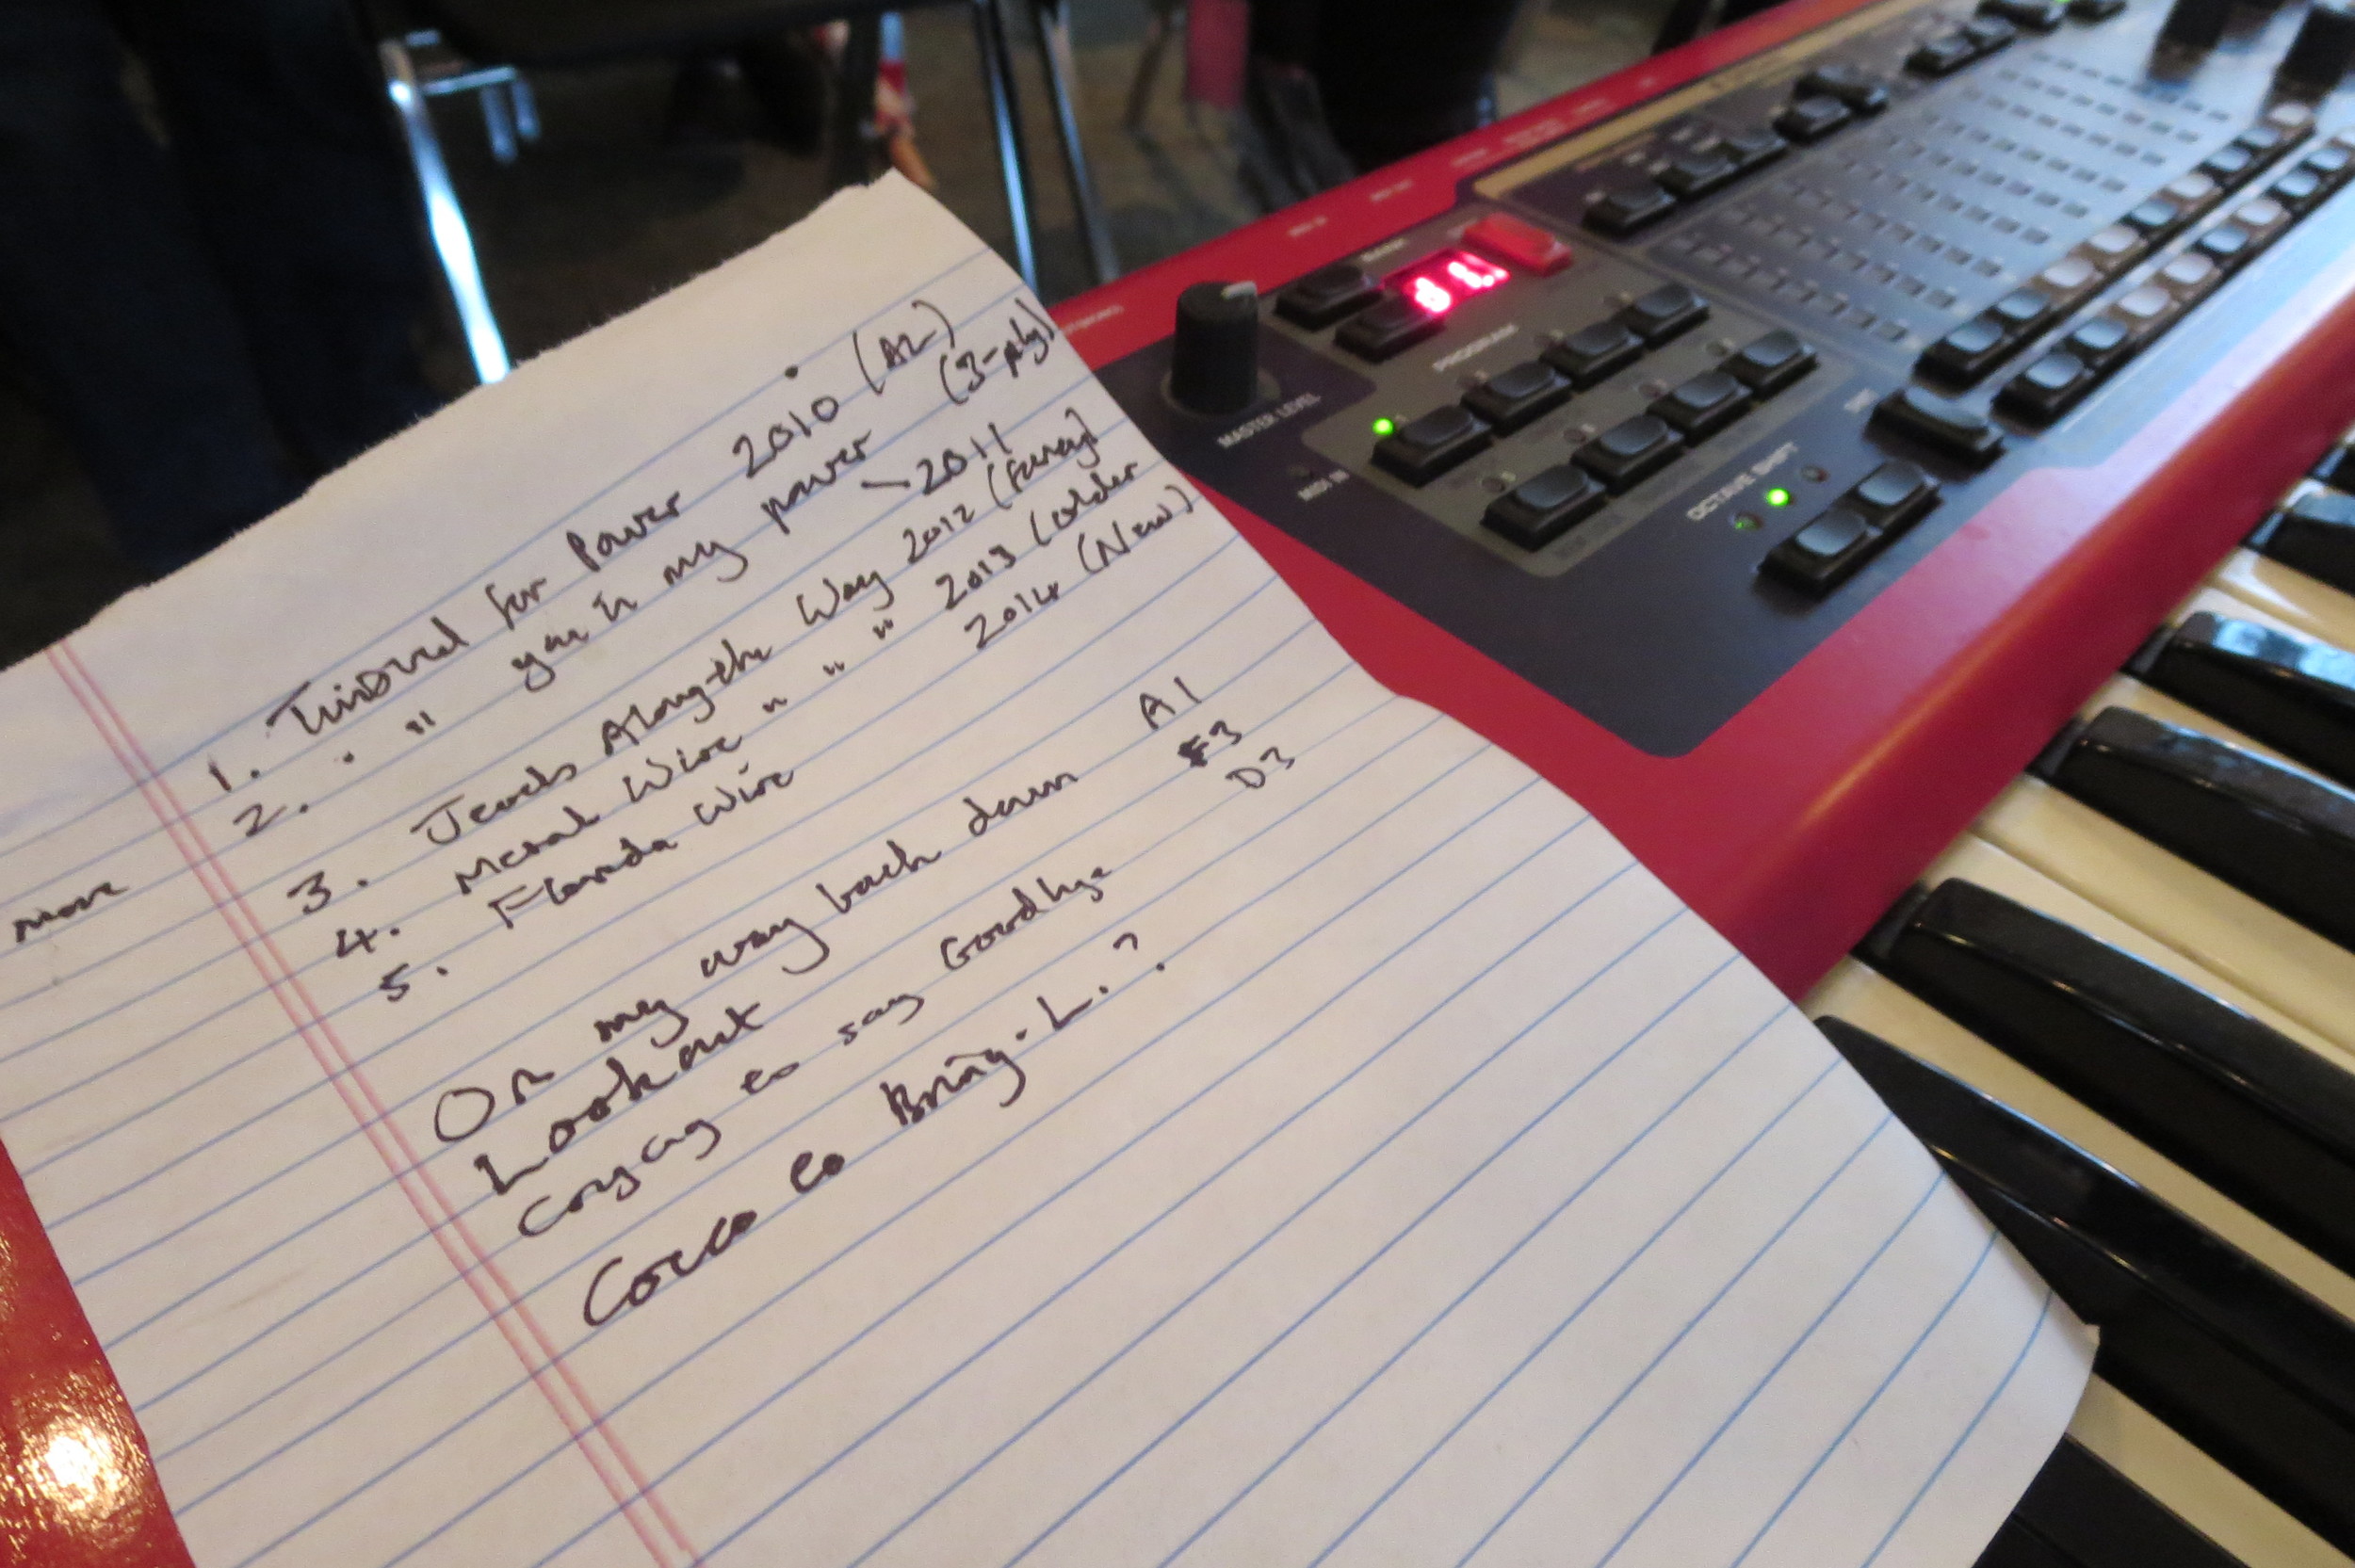 1. Twisted for Power 2010 (AL)
2. . " you in my power (3-ply)
- 2011
3. Jewels Along the Way 2012 (Fancy)
4. Metal Wire " " " 2013 (older
5. Florida Wire 2014 (New)
more
On my way back down A1
Lookout F3
Crying to say Goodbye D3
Coco to Bring. L.?
MASTER LEVEL
MIDI IN
PROGRAM
OCTAVE SHIFT